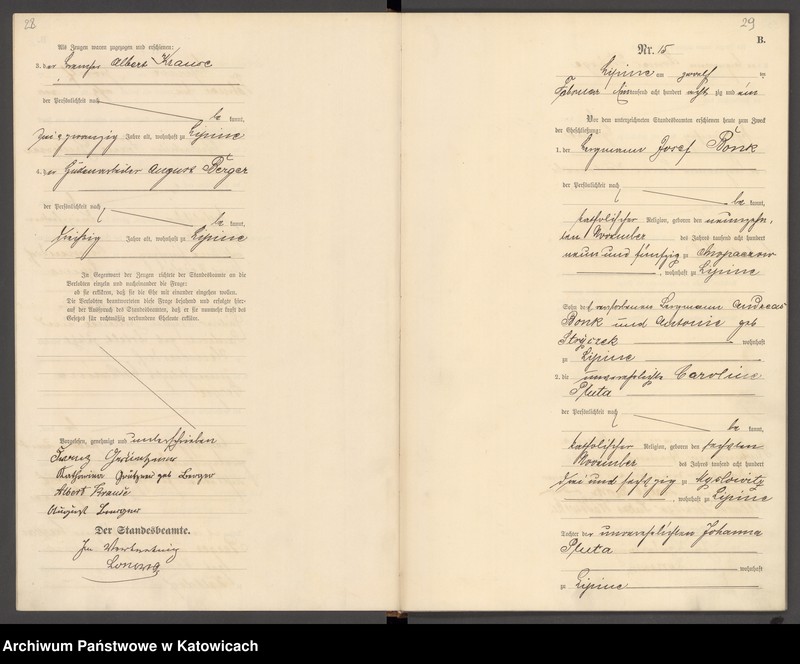 28
Als Zeugen waren zugezogen und erschienen:
3. der Albert Krause
der Persönlichkeit nach
be kannt,
zwei & zwanzig Jahre alt, wohnhaft zu Lipine
4. der Hüttenarbeiter August Berger
der Persönlichkeit nach
be kannt,
dreißig Jahre alt, wohnhaft zu Lipine
In Gegenwart der Zeugen richtete der Standesbeamte an die
Verlobten einzeln und nacheinander die Frage:
ob sie erklären, daß sie die Ehe mit einander eingehen wollen.
Die Verlobten beantworteten diese Frage bejahend und erfolgte hier-
auf der Ausspruch des Standesbeamten, daß er sie nunmehr kraft des
Gesetzes für rechtmäßig verbundene Eheleute erkläre.
Vorgelesen, genehmigt und unterschrieben
Franz
Katharina Grützner geb Berger
Albert Krause
August
Der Standesbeamte.
In Vertretung
29
B.
Nr. 15
Lipine am zwölf ten
Februar tausend acht hundert acht zig und ein
Vor dem unterzeichneten Standesbeamten erschienen heute zum Zweck
der Eheschließung:
1. der Bergmann Josef Bonk
der Persönlichkeit nach
be kannt,
katholischer Religion, geboren den neunzehn,
ten November des Jahres tausend acht hundert
neun und fünfzig zu Chropaczow
, wohnhaft zu Lipine
Sohn des verstorbenen Bergmann Andreas
Bonk und Antonie geb
wohnhaft
zu Lipine
2. die unverehelichte Caroline
Pluta
der Persönlichkeit nach
be kannt,
katholischer Religion, geboren den sechsten
November des Jahres tausend acht hundert
drei und sechszig zu Myslowitz
, wohnhaft zu Lipine
Tochter der unverehelichten Johanna
Pluta
wohnhaft
zu Lipine
Archiwum Państwowe w Katowicach